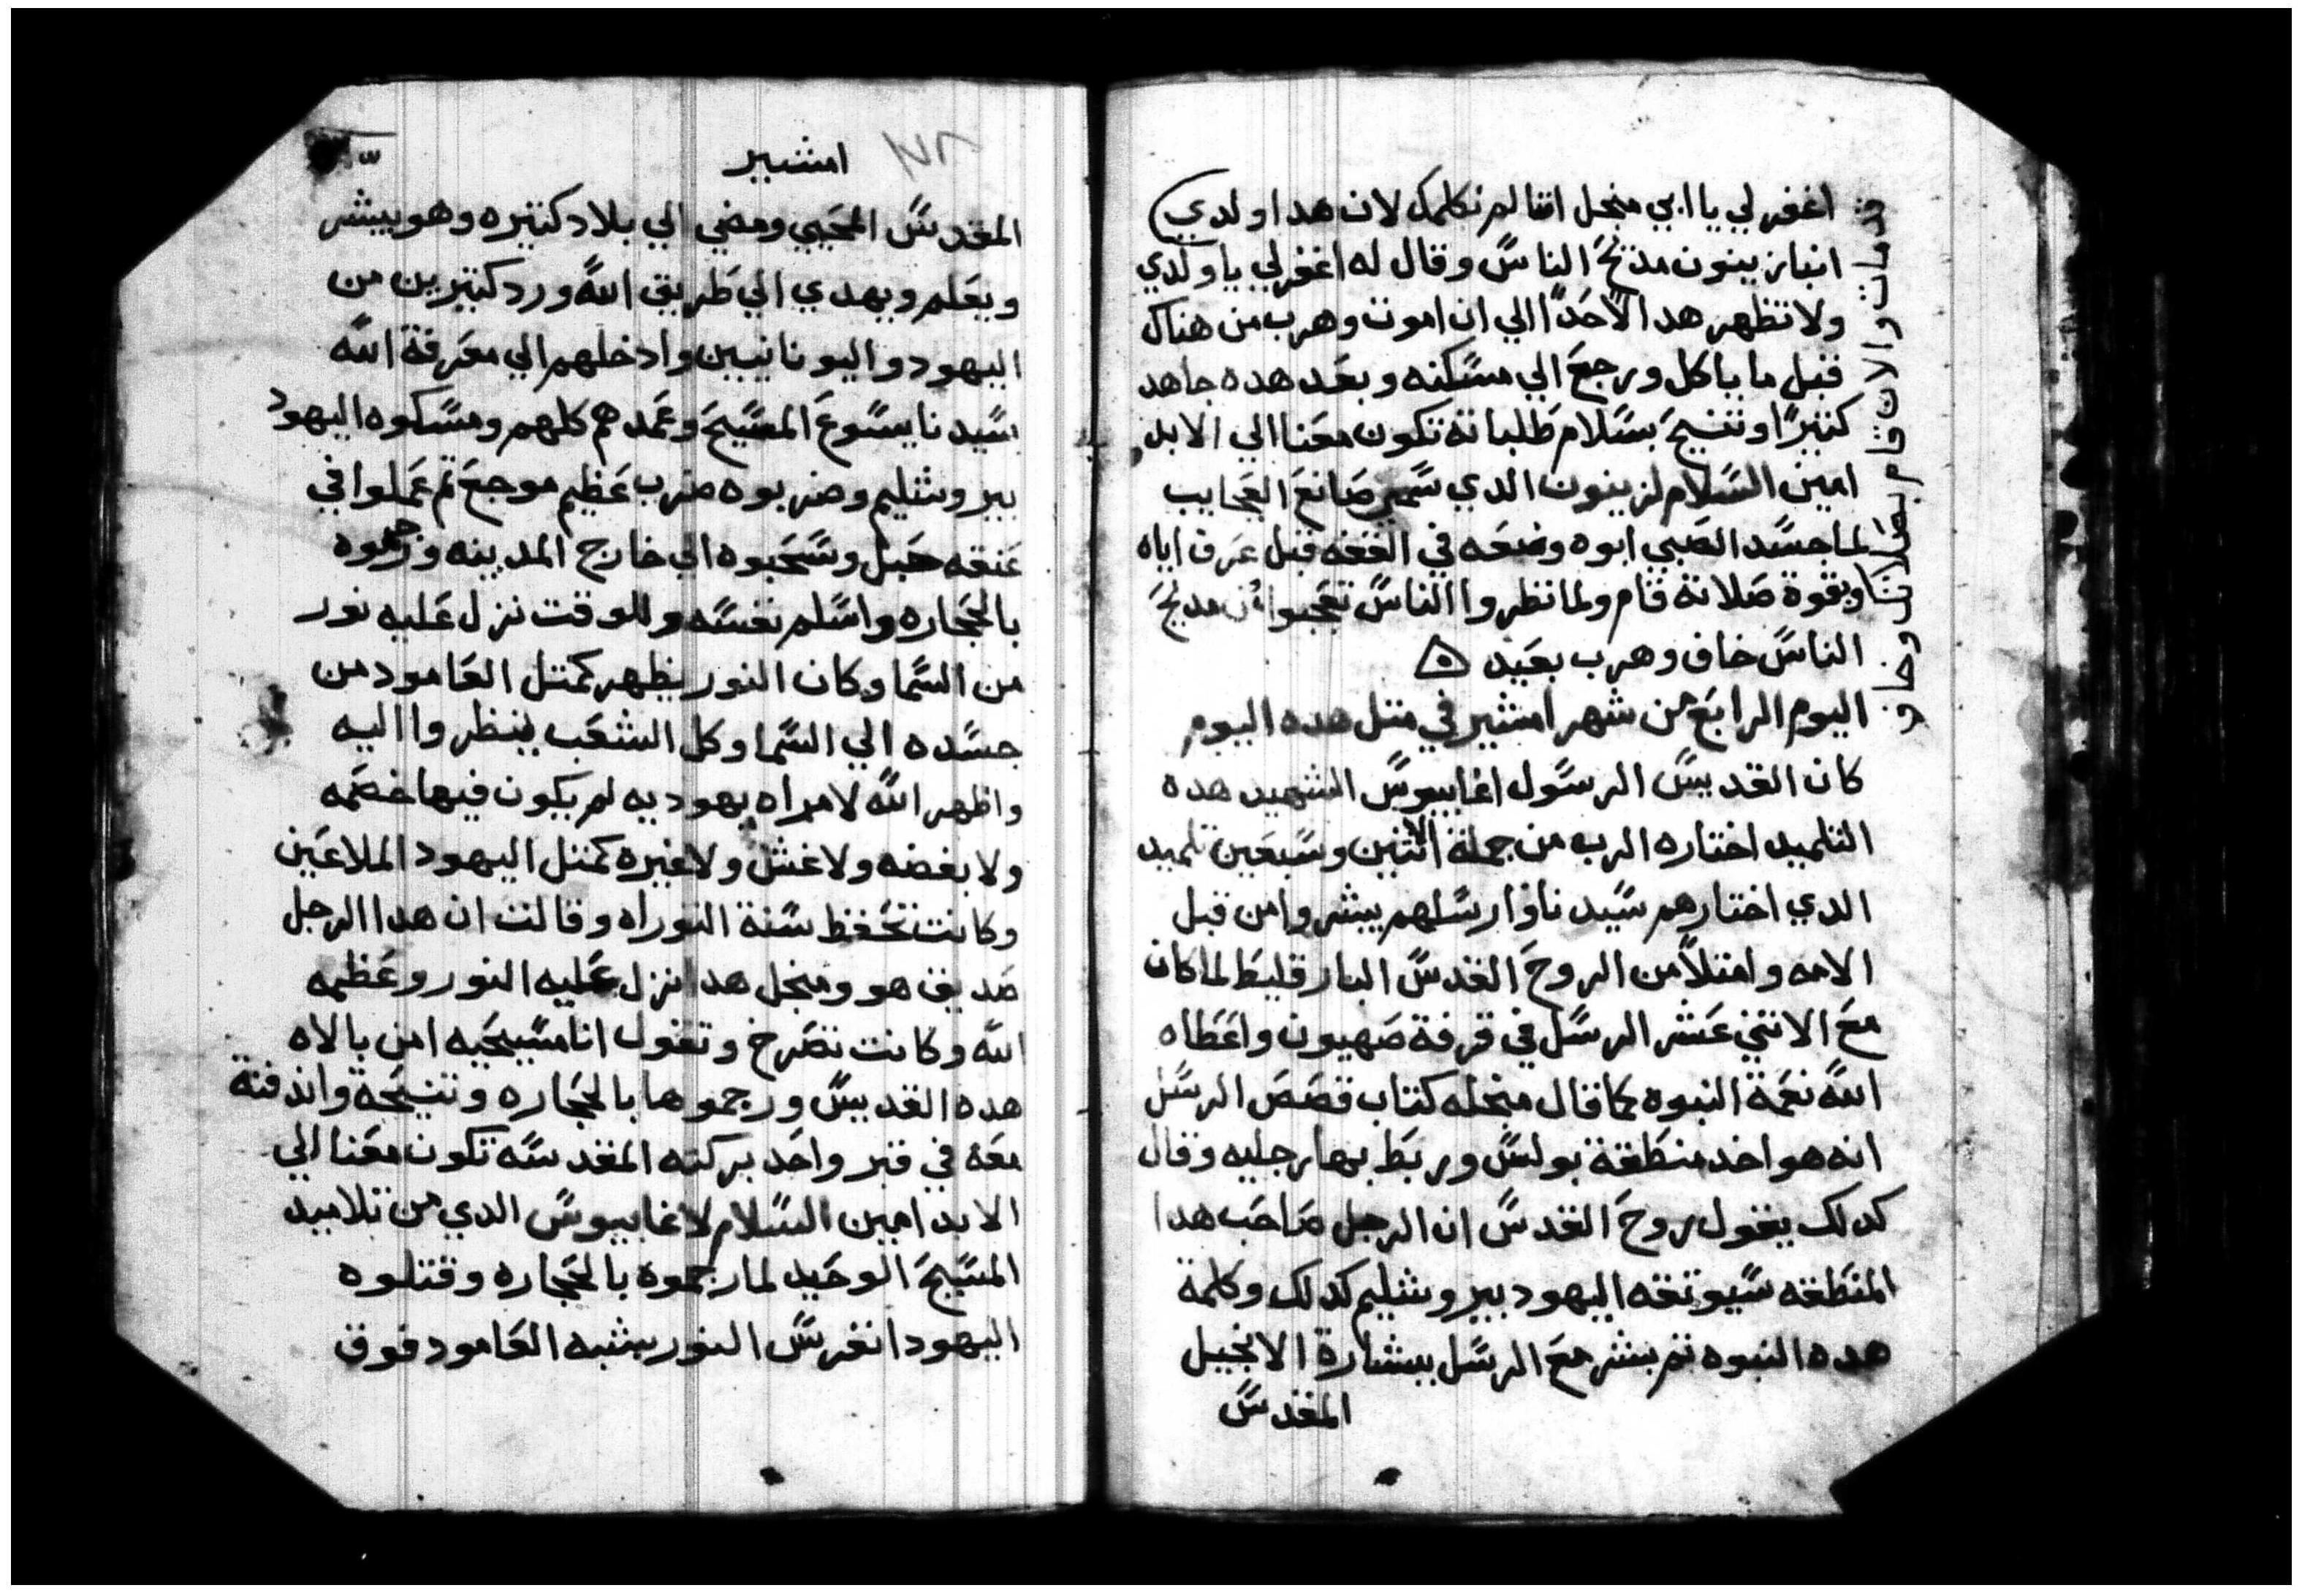 اغفر لي يا ابي منجل اننا لم نكلمك لان هدا ولدي
قد مات والان قام بصلاتك وخاف
انبا زينون مدبح الناس وقال له اغفر لي يا ولدي
ولا تظهر هدا لاحدا الي ان اموت وهرب من هناك
قبل ما ياكل ورجع الي مسكنه وبعد هده جاهد
كثيرا وتنيح بسلام طلباته تكون معنا الي الابد
امين السلام لزينون الدي سمي صانع العجايب
لما جسد الصبي ابوه وضعه في القفه قبل عرف اياه
وبقوة صلاتة قام ولما نظروا الناس تعجبوا من مديح
الناس خاف وهرب بعيد
اليوم الرابع من شهر امشير في متل هده اليوم
كان القديس الرسول اغابيوس الشهيد هده
التلميد اختاره الرب من جملة الاتنين وسبعين تلميد
الدي اختارهم سيدنا وارسلهم يبشروا من قبل
الامه وامتلا من الروح القدس البارقليط لما كان
مع الاتني عشر الرسل في قرفة صهيون واعطاه
الله نعمة النبوه كما قال منجله كتاب قصص الرسل
انه هو اخد منطقة بولس وربط بها رجليه وقال
كدلك يقول روح القدس ان الرجل صاحب هدا
المنطقه سيوتقه اليهود بيروشليم كدلك وكلمة
هده النبوه تم بشر مع الرسل ببشارة الانجيل
المقدس
امشير
المقدس المحيي ومضي الي بلاد كتيره وهو يبشر
ويعلم ويهدي الي طريق الله ورد كتيرين من
اليهود واليونانيين وادخلهم الي معرفة الله
بسيدنا يسوع المسيح وعمدهم كلهم ومسكوه اليهود
بيروشليم وضربوه ضرب عظيم موجع تم عملوا في
عنقه حبل وسحبوه الي خارج المدينه ورجموه
بالحجاره واسلم نفسه وللوقت نزل عليه نور
من السما وكان النور يظهر كمتل العامود من
جسده الي السما وكل الشعب ينظروا اليه
واظهر الله لامراه يهوديه لم يكون فيها خصمه
ولا بغضه ولا غش ولا غيره كمتل اليهود الملاعين
وكانت تحفظ سنة التوراه وقالت ان هدا الرجل
صديق هو ومنجل هدا نزل عليه النور وعظمه
الله وكانت تصرخ وتقول انا مسيحيه امن بالاه
هده القديس ورجموها بالحجاره وتنيحة واندفنة
معه في قبر واحد بركته المقدسه تكون معنا الي
الابد امين السلام لاغابيوس الدي من تلاميد
المسيح الوحيد لما رجموه بالحجاره وقتلوه
اليهود انغرس النور بشبه العامود فوق